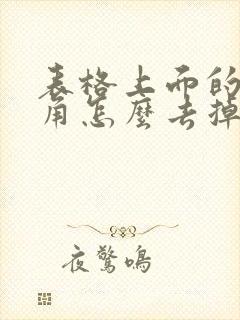 表格上面的
角怎麼去掉
夜驚鳴